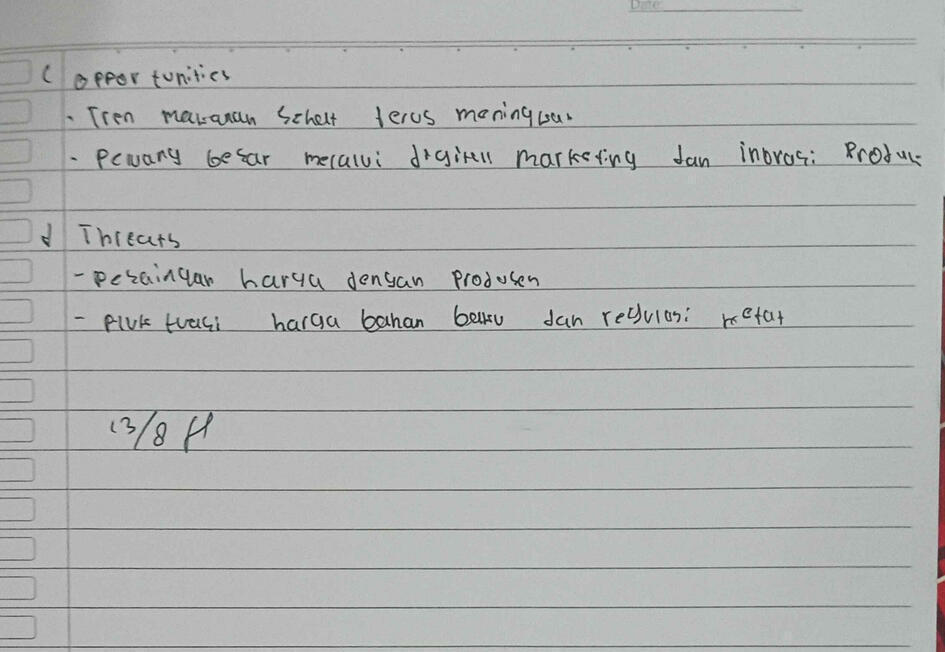 Date:
c opportunities
- Tren makanan sehat terus meningkat
- Peluang besar melalui digital marketing dan inovasi produk
d Threats
- Pesaingan harga dengan Produsen
- Fluktuasi harga bahan baku dan regulasi ketat
13/8